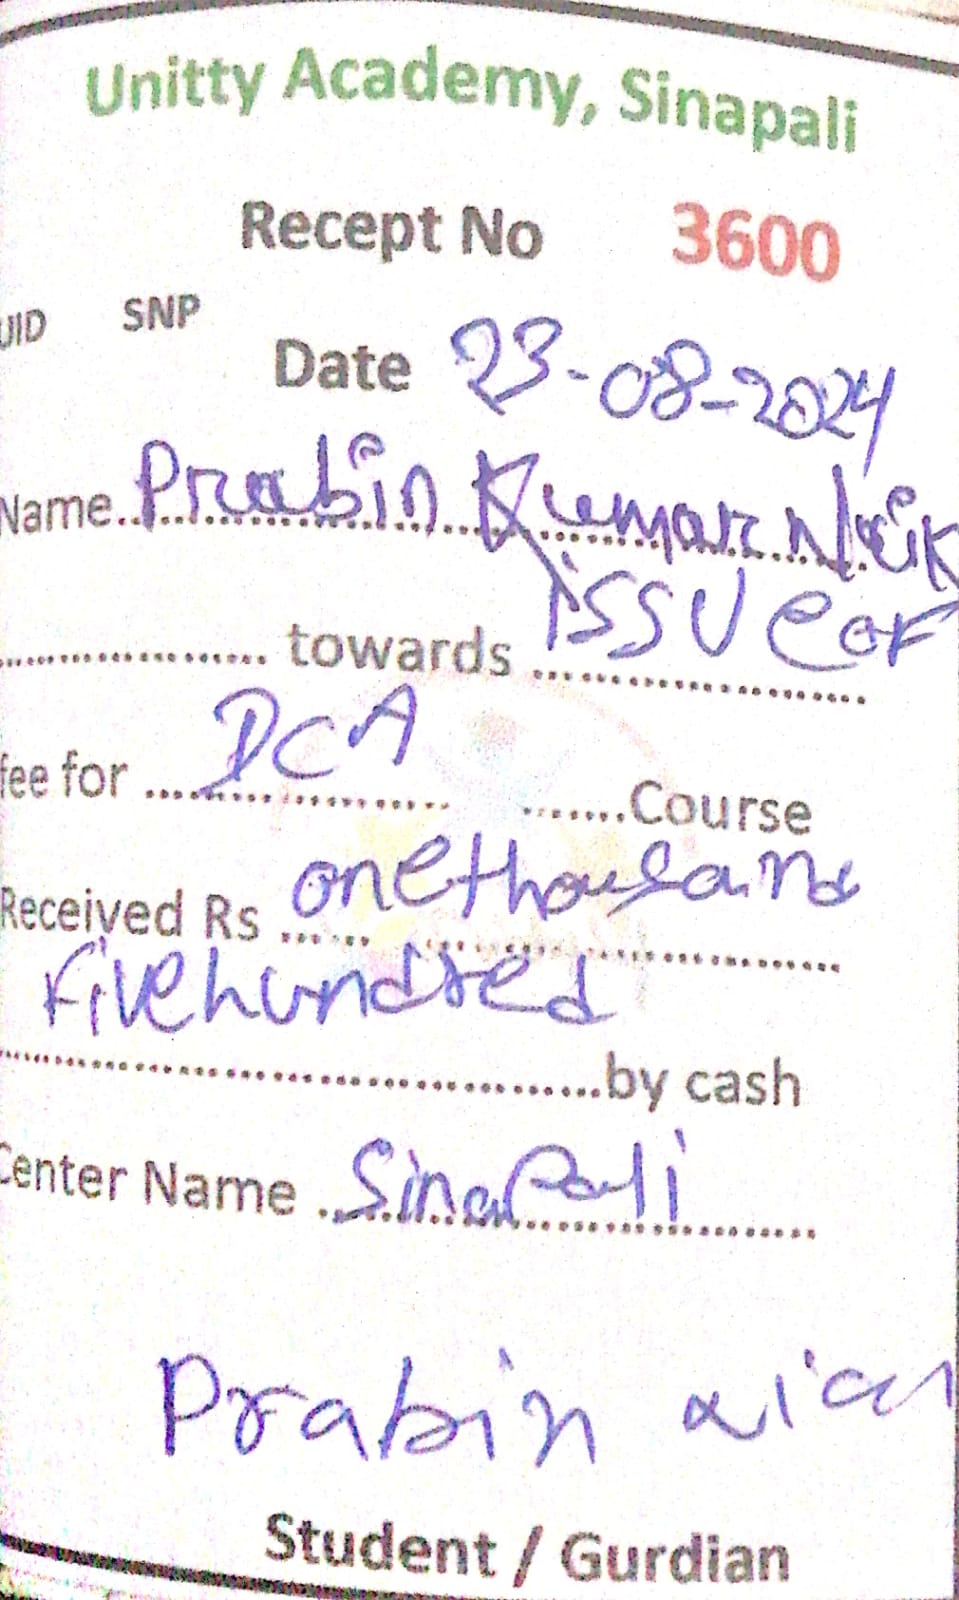 Unitty Academy, Sinapali
Recept No 3600
UID SNP
Date 23-08-2024
Name Prabin Kumar Naik
towards issue of
fee for DCA Course
Received Rs one thousand
Five hundred
by cash
Center Name Sinapali
Prabin
Student / Gurdian